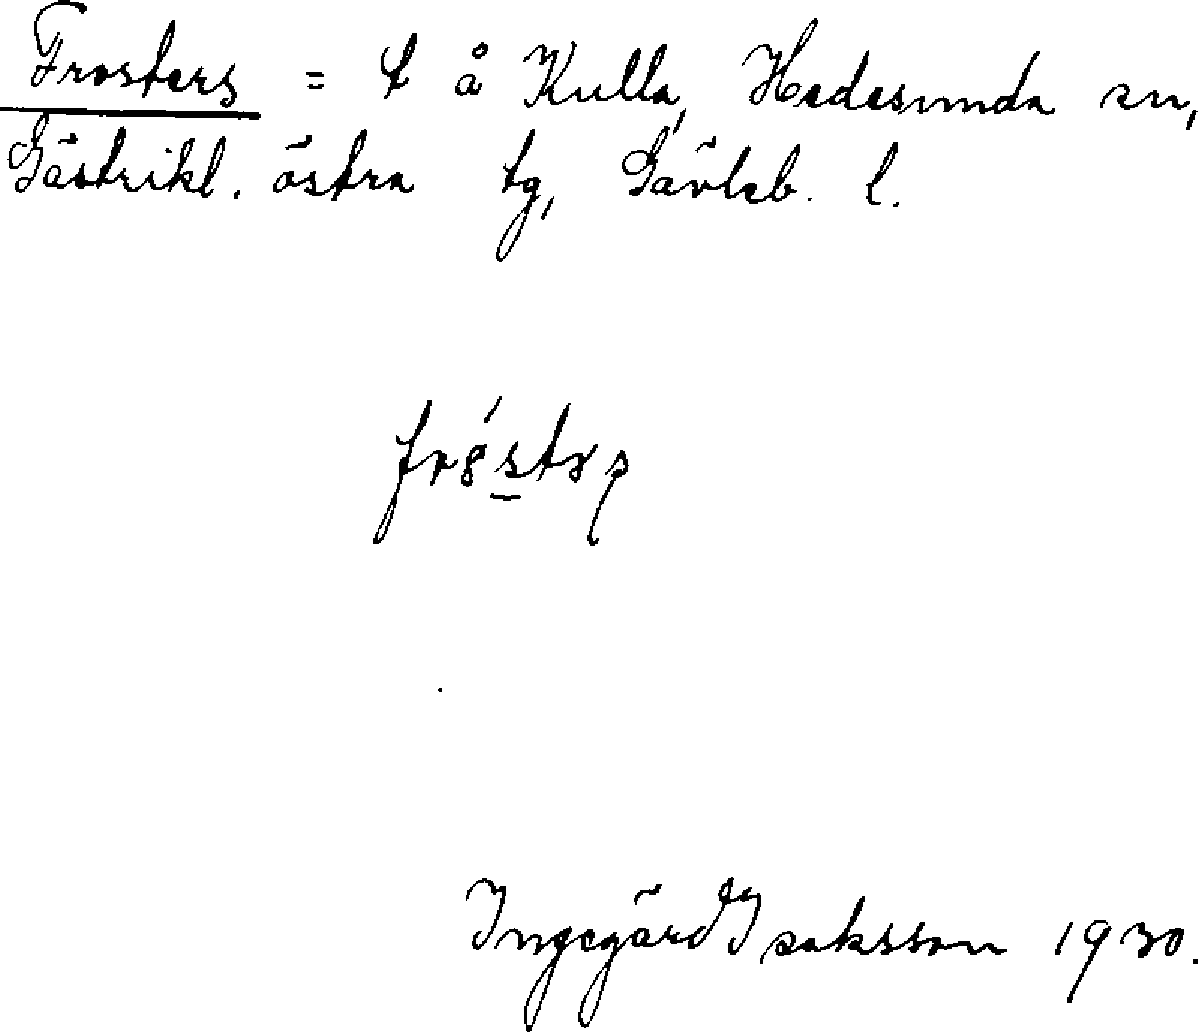 Frosters = t å Kulla, Hedesunda sn,
Gästrikl. östra tg, Gävleb. l.
Ingegärd Isaksson 1930.